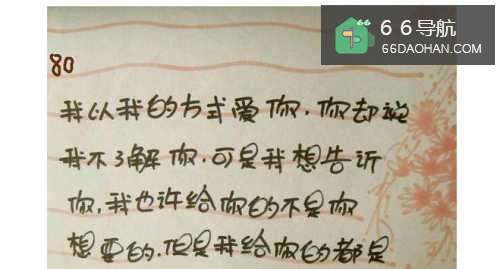 66导航
66DAOHAN.COM
80
我以我的方式爱你.你却说
我不了解你.可是我想告诉
你,我也许给你的不是你
想要的.但是我给你的都是